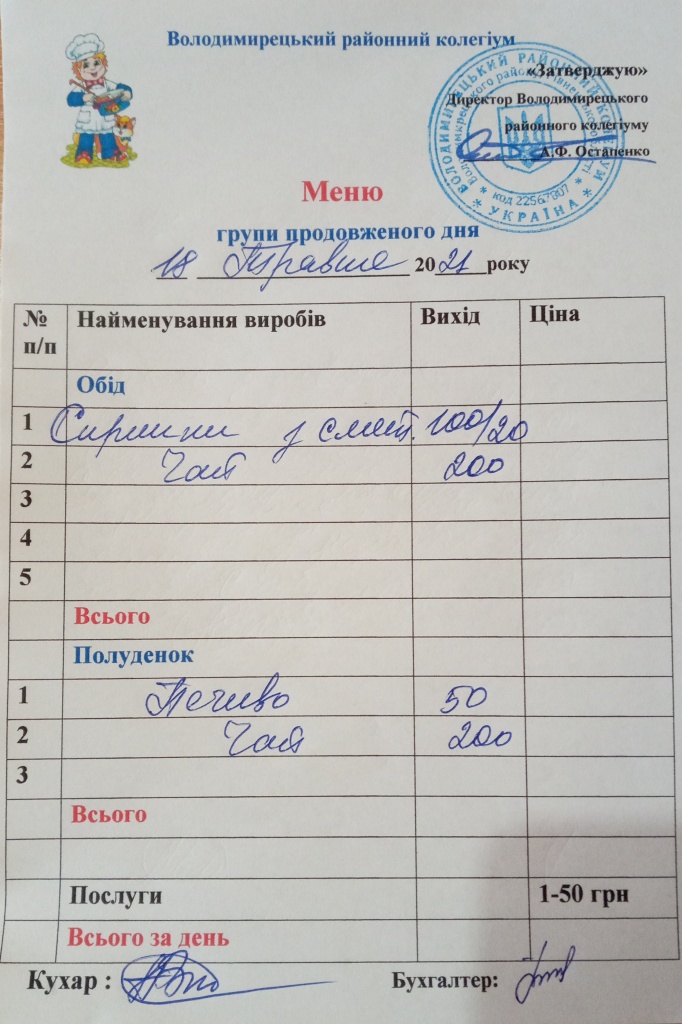 Володимирецький районний колегіум
«Затверджую»
Директор Володимирецького
районного колегіуму
А.Ф. Остапенко
ВОЛОДИМИРЕЦЬКИЙ РАЙОННИЙ КОЛЕГІУМ
код 22567807
УКРАЇНА
Меню
групи продовженого дня
18 Травня 2021 року
№ п/п Найменування виробів Вихід Ціна
Обід
1 Сирники з смет. 100/20
2 Чай 200
3
4
5
Всього
Полуденок
1 Печиво 50
2 Чай 200
3
Всього
Послуги 1-50 грн
Всього за день
Кухар : Бухгалтер: